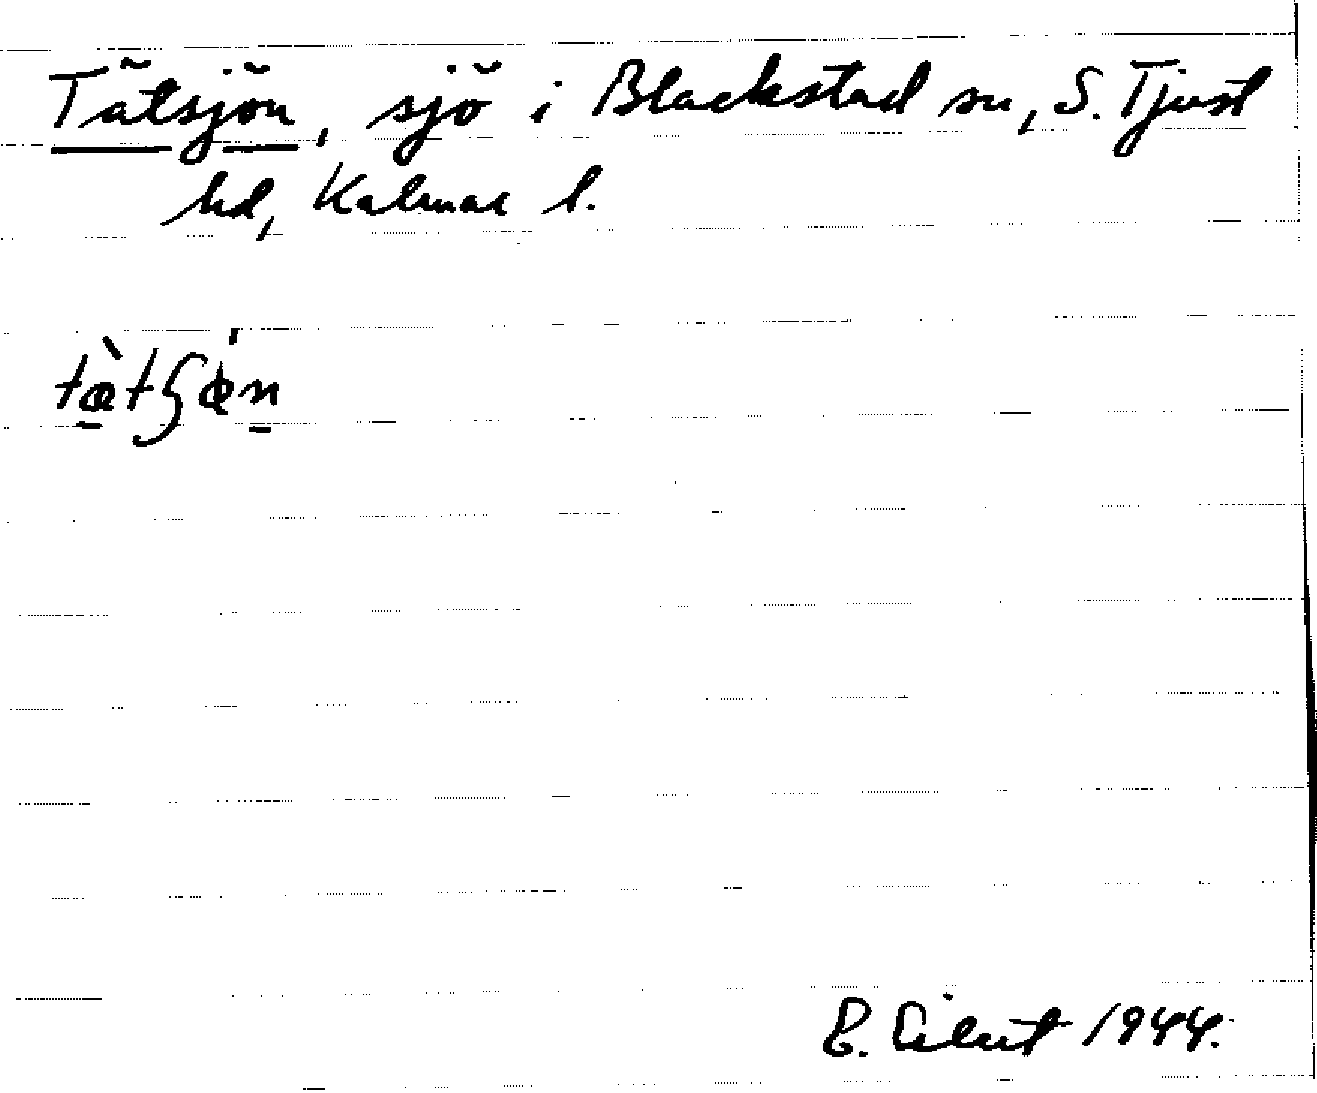 Tätsjön, sjö i Blackstad sn, S. Tjust
hd, Kalmar l.
tæ̀tʃǿn
1944.